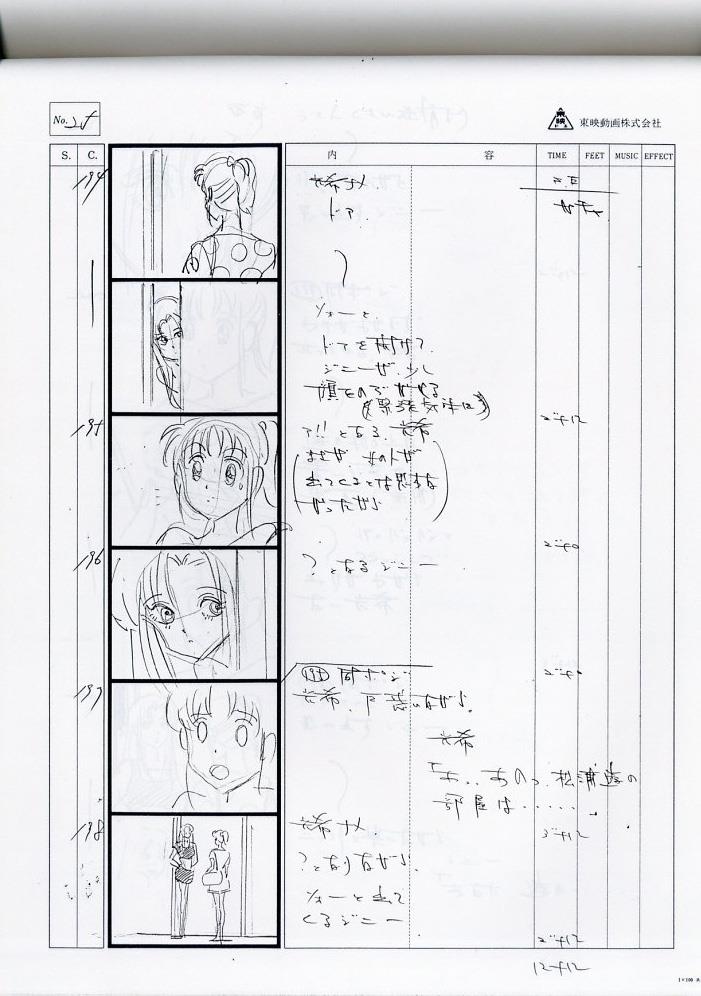 No.
東映動画株式会社
S. C. 内 容 TIME FEET MUSIC EFFECT
194
光希ナメ
ドア.
ソォーと、
ドアを開けて.
ジニーが、少し
顔をのぞかせる
195
ア!!となる、光希
まさか、女の人が
出てくるとは思わな
かったから
2+12
196
？となるジニー
2+0
197
195 同ポジ
光希、戸惑いながら、
光希
「あ‥あのっ、松浦遊の
部屋は……
2+0
198
光希ナメ
？となりながら、
ソォーと出て
くるジニー
3+12
2+12
12+12